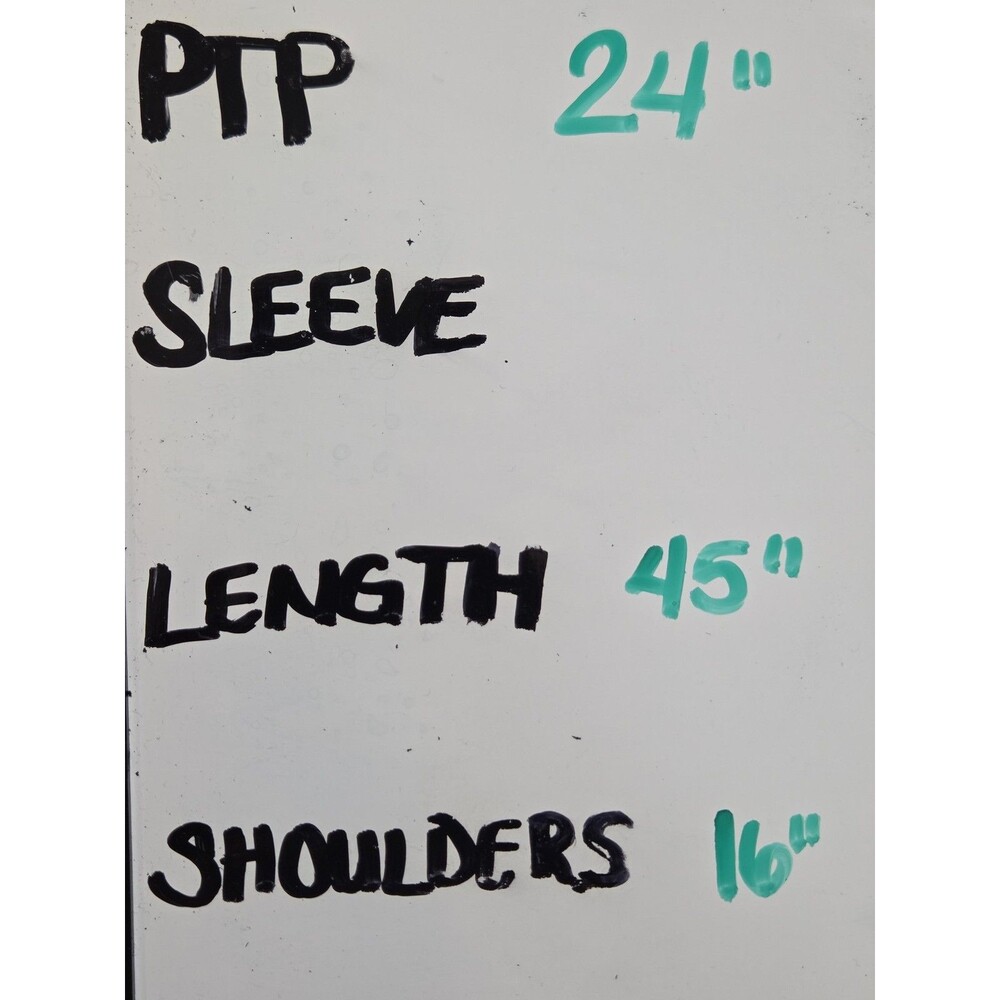 PTP 24"
SLEEVE
LENGTH 45"
SHOULDERS 16"